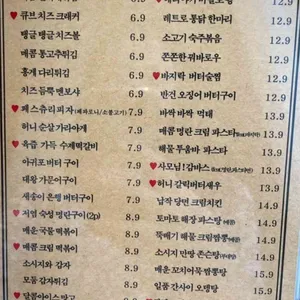 ♥큐브 치즈 크래커 6.9
탱글 탱글 치즈볼 6.9
매콤 통고추튀김 6.9
홍게 다리튀김 6.9
치즈듬뿍 멘보샤 6.9
♥페스츄리 피자 (페퍼로니/소불고기) 7.9
허니 순살 가라아게 7.9
♥육즙 가득 수제떡갈비 7.9
아귀포 버터구이 7.9
대왕 가문어구이 7.9
새송이 은행 버터구이 7.9
♥저염 숙성 명란구이(2p) 8.9
매운 국물 떡볶이 8.9
♥매콤 크림 떡볶이 8.9
소시지와 감자 8.9
모둠 감자튀김 8.9
12.9
레트로 통닭 한마리 12.9
소고기 숙주볶음 12.9
쫀쫀한 꿔바로우 12.9
♥바지락 버터술찜 12.9
반건 오징어 버터구이 12.9
바싹 바싹 먹태 12.9
매콤 명란 크림 파스타 13.9
해물 투움바 파스타 13.9
♥사모님! 감바스 13.9
♥허니 갈릭버터새우 13.9
납작 당면 크림치킨 13.9
토마토 해장 파스타 14.9
뚝배기 해물 크림짬뽕 14.9
소시지 만난 존슨탕 14.9
매운 꼬치어묵짬뽕탕 14.9
일품 간사이 오뎅탕 14.9